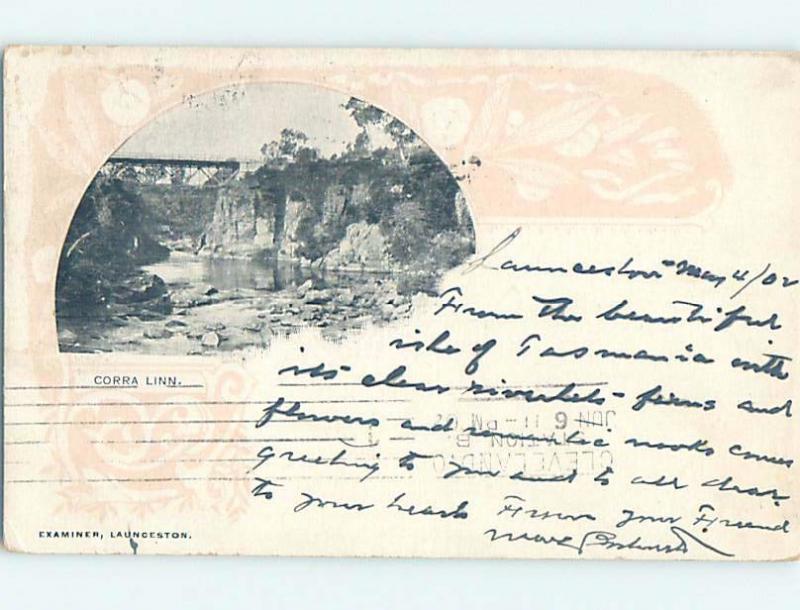 CORRA LINN.
Launceston May 4/02
From the beautiful
isle of Tasmania with
its clear riverlets - ferns and
flowers and romantic nooks comes
greeting to you and to all dear
to your heart From your Friend
EXAMINER, LAUNCESTON.
CLEVELAND, O.
STATION B.
JUN 6 11 - PM 02